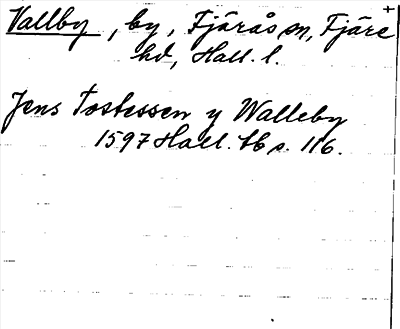 Vallby, by, Fjärås sn, Fjäre
hd, Hall. l.
Jens Tostessen y Walleby
1597 Hall. tb s. 116.